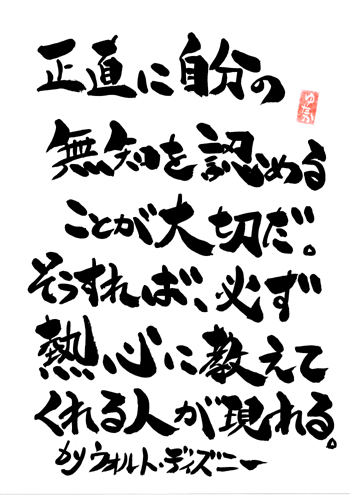 正直に自分の
ゆたか
無知を認める
ことが大切だ。
そうすれば、必ず
熱心に教えて
くれる人が現れる。
byウォルト・ディズニー